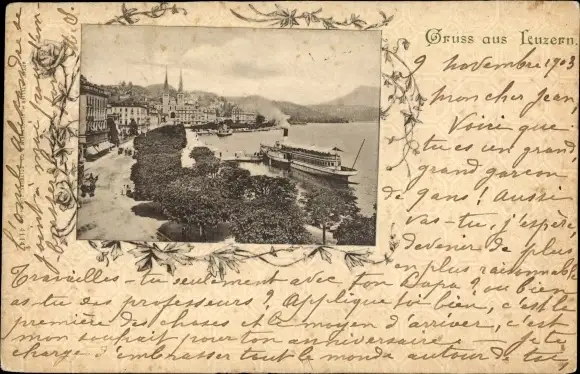 Gruss aus Luzern.
9 novembre 1903
mon cher Jean,
Voici que
tu es un grand
grand garçon
de 9 ans! Aussi
vas-tu, j'espère
devenir de plus
en plus raisonnable
Travailles-tu seulement avec ton Papa? ou bien
as-tu des professeurs? Applique toi bien, c'est la
première des choses et le moyen d'arriver, c'est
mon souhait pour ton anniversaire — je te
charge d'embrasser tout le monde autour de toi,
L'oncle Alexandre se
joint à moi pour t'em-
brasser